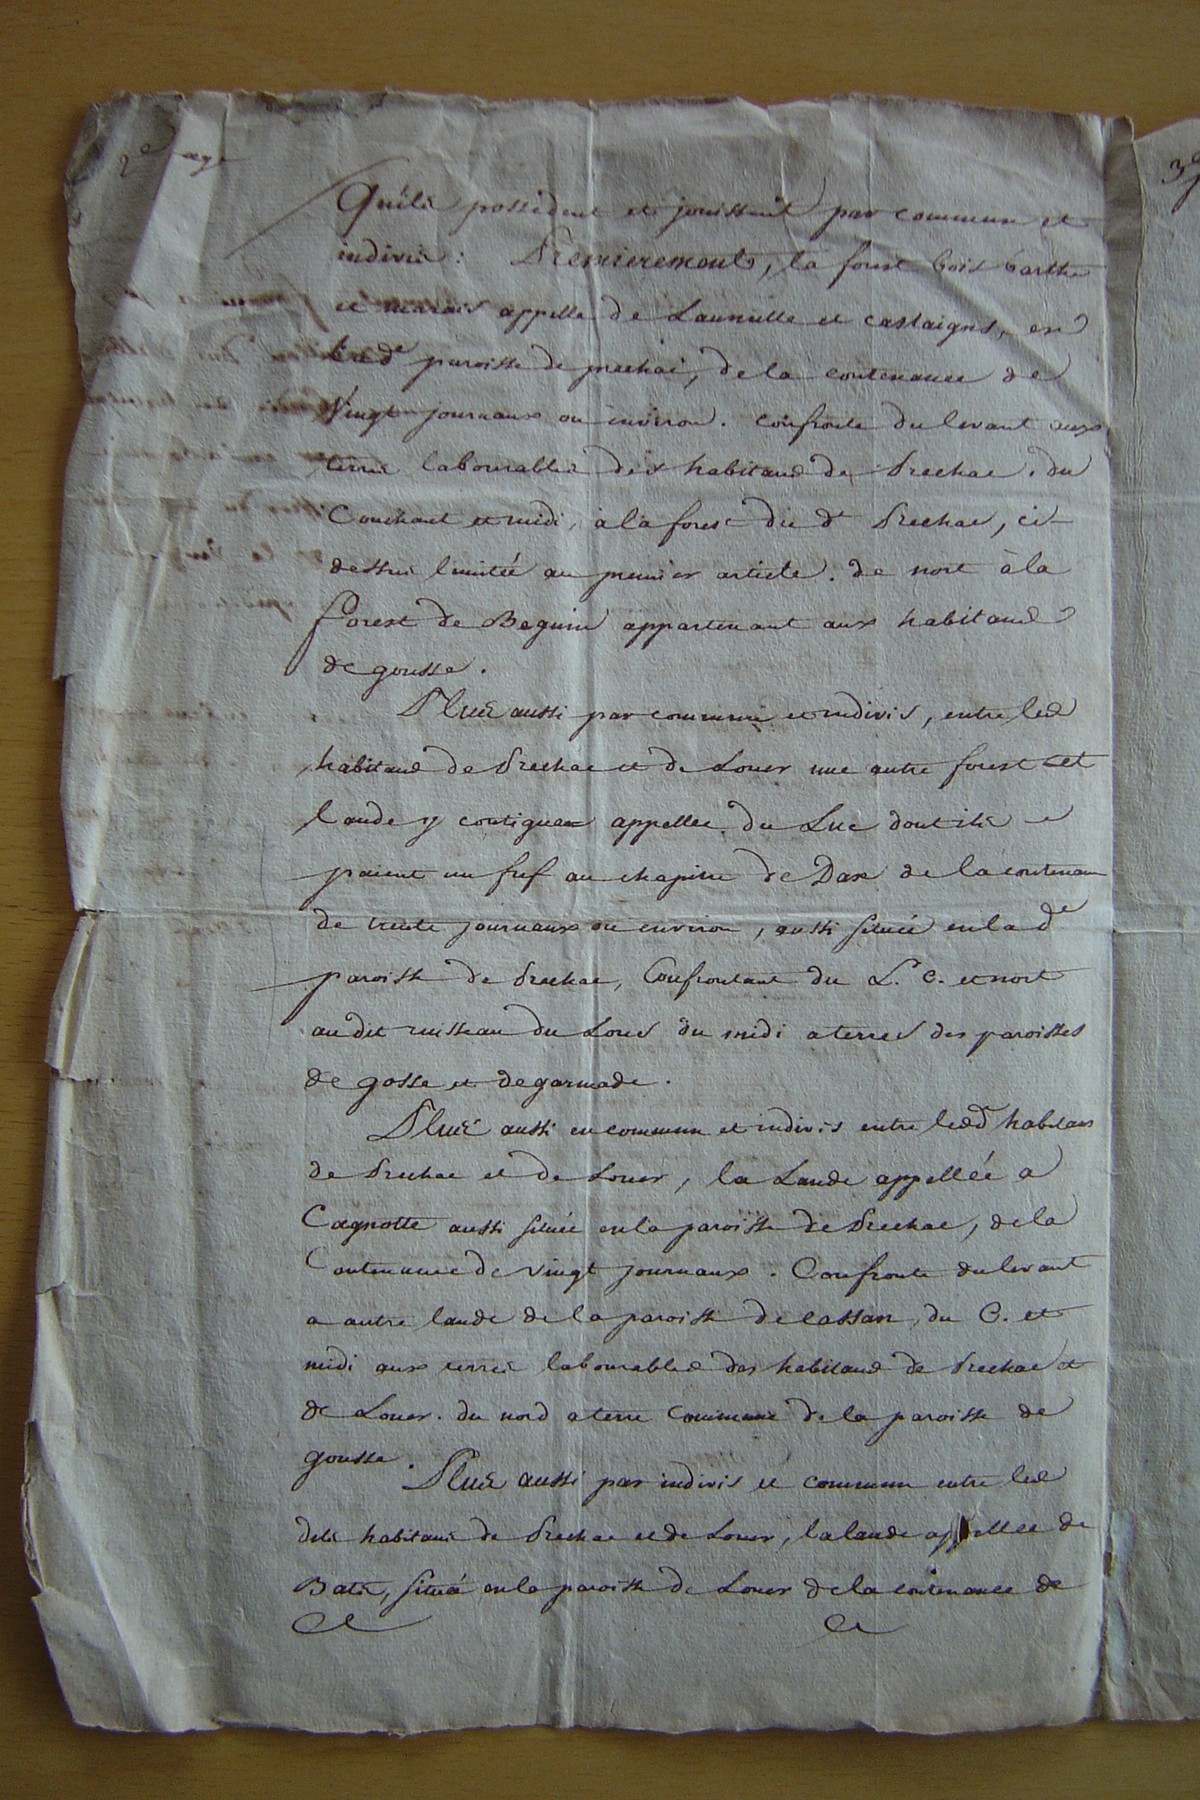 2e page
3e p
Quils possedent et jouissent par commun et
indivis : Premierement, la forest bois barthe
et marais appellé de Launulle et castaigns, en
lad.e paroisse de prechac, de la contenance de
Vingt journaux ou environ. confronte du levant aux
terres labourables des habitans de Prechac. du
Couchant et midi, à la forest du d. Prechac, ci-
dessus limitée au premier article. de nort à la
forest de Beguin appartenant aux habitans
de gousse.
Plus aussi par commun et indivis, entre les
habitans de Prechac et de Louer une autre forest et
lande y contigue appellee du Luc dont ils
paient un fief au chapitre de Dax de la contenan
de trente journaux ou environ, aussi située en lad.e
paroisse de Prechac, Confrontant du L. C. et nort
au dit ruisseau du Louts du midi a terres des paroisses
de gosse et de garmade.
Plus aussi en commun et indivis entre lesd. habitans
de Prechac et de Louer, la Lande appellée a
Cagnotte aussi située en la paroisse de Prechac, de la
Contenance de vingt journaux. Confronte du levant
a autre lande de la paroisse de cassan, du C. et
midi aux terres labourables des habitans de Prechac et
de Louer. du nord a terre commune de la paroisse de
gousse.
Plus aussi par indivis et commun entre les
dits habitans de Prechac et de Louer, la lande appellee de
Bats, située en la paroisse de Louer de la contenance de